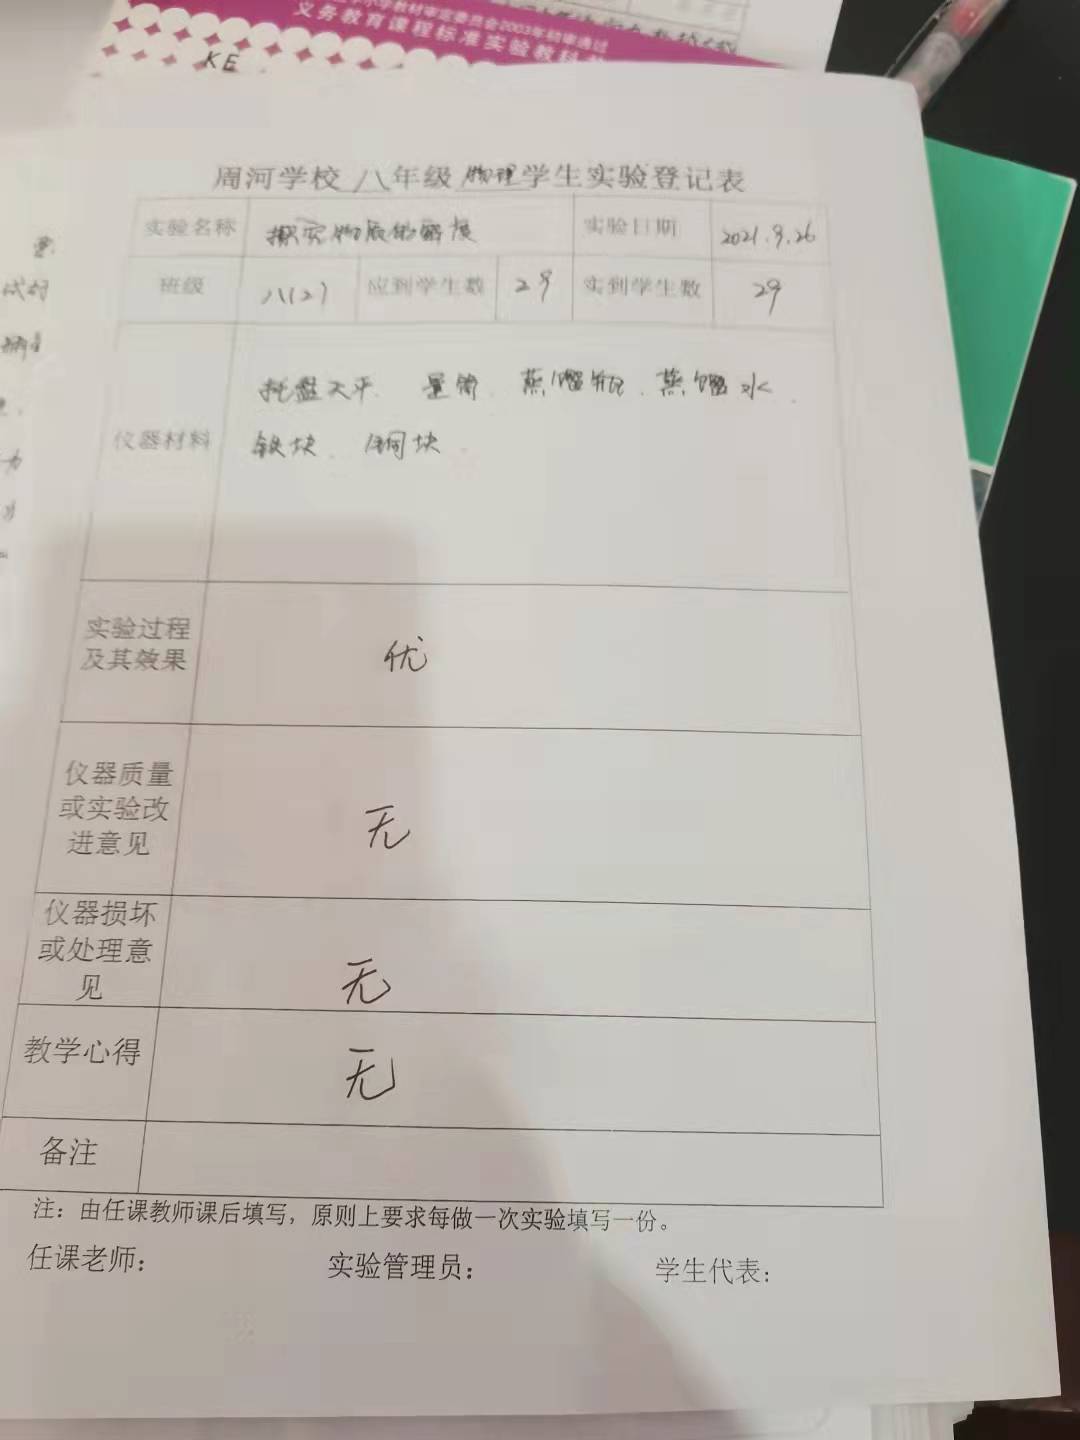 小学教材审定委员会2003年初审通过
义务教育课程标准实验教科
KE
周河学校 八年级 物理 学生实验登记表
实验名称 探究物质的密度 实验日期 2021.9.26
班级 八(2) 应到学生数 29 实到学生数 29
仪器材料 托盘天平、量筒、蒸馏瓶、蒸馏水、
铁块、铜块、
实验过程
及其效果 优
仪器质量
或实验改
进意见 无
仪器损坏
或处理意
见 无
教学心得 无
备注
注：由任课教师课后填写，原则上要求每做一次实验填写一份。
任课老师： 实验管理员： 学生代表：